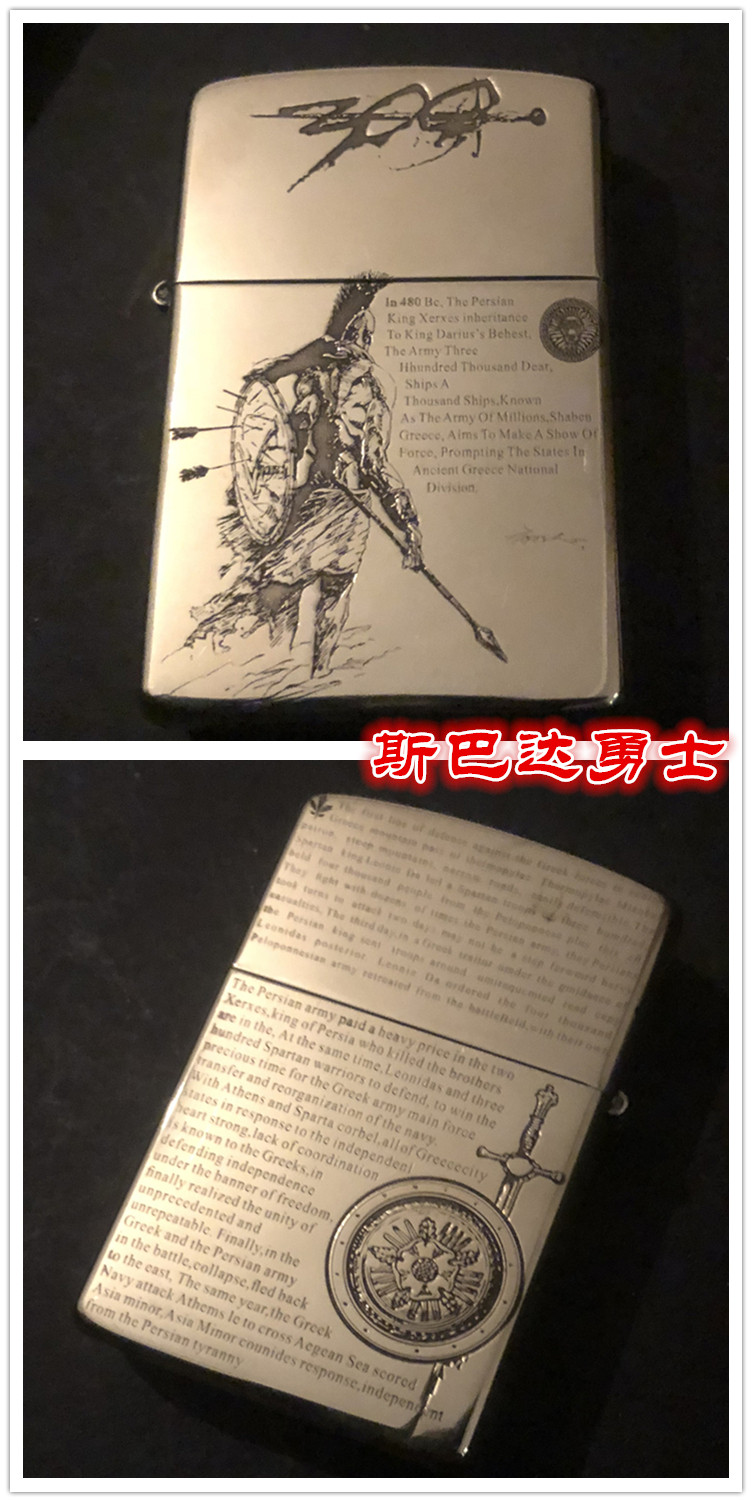 300
In 480 Bc, The Persian
King Xerxes inheritance
To King Darius's Behest,
The Army Three
Hhundred Thousand Dear,
Ships A
Thousand Ships,Known
As The Army Of Millions,Shaben
Greece, Aims To Make A Show Of
Force, Prompting The States In
Ancient Greece National
Division.
斯巴达勇士
The first line of defence against the Greek forces in
Greece mountain pass of thermopylae Thermopylae
steep mountains, narrow roads, easily defensible
Spartan king Leonie Da led a Spartan troops three hundred
hold four thousand people from the Peloponnese plus this
They fight with dozens of times the Persian army, they
took turns to attack two days may not be a step forward
casualties, The third day,in a Greek traitor under the guidance of
the Persian king sent troops around unfrequented road
Leonidas posterior Leonie Da ordered the four thousand
Peloponnesian army retreated from the battlefield,with their own
The Persian army paid a heavy price in the two
Xerxes,king of Persia who killed the brothers
are in the, At the same time,Leonidas and three
hundred Spartan warriors to defend, to win the
precious time for the Greek army main force
transfer and reorganization of the navy.
With Athens and Sparta corbel,all of Greececity
States in response to the independent
heart strong,lack of coordination
is known to the Greeks,in
defending independence
under the banner of freedom,
finally realized the unity of
unprecedented and
unrepeatable. Finally,in the
Greek and the Persian army
in the battle,collapse,fled back
to the east, The same year,the Greek
Navy attack Athems le to cross Aegean Sea scored
Asia minor,Asia Minor counides response,independent
from the Persian tyranny